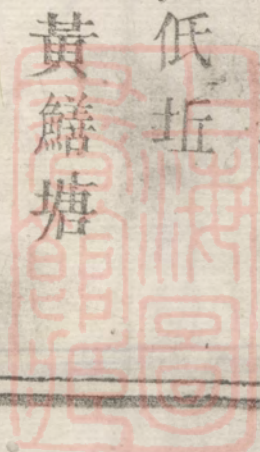 低坵
黃鱔塘